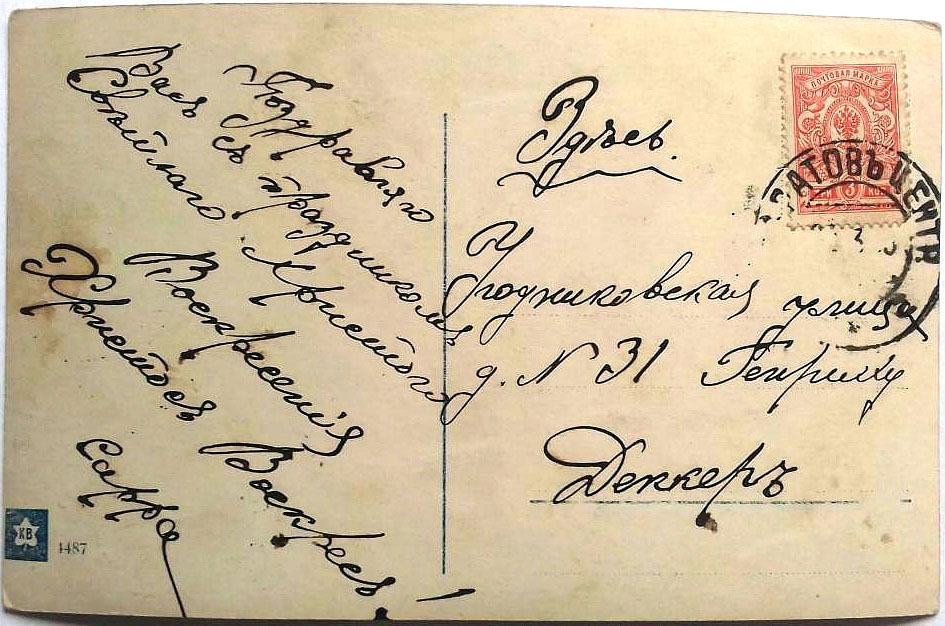 Поздравляю
Васъ съ праздникомъ
Свѣтлаго Христого
Воскресенія
Христосъ Воскресъ!
Сарра
КВ
1487
Здѣсь.
Угодниковская улица
д. N 31 Генриху
Деккеръ
ПОЧТОВАЯ МАРКА
3
РАТОВЪ ЦЕНТР